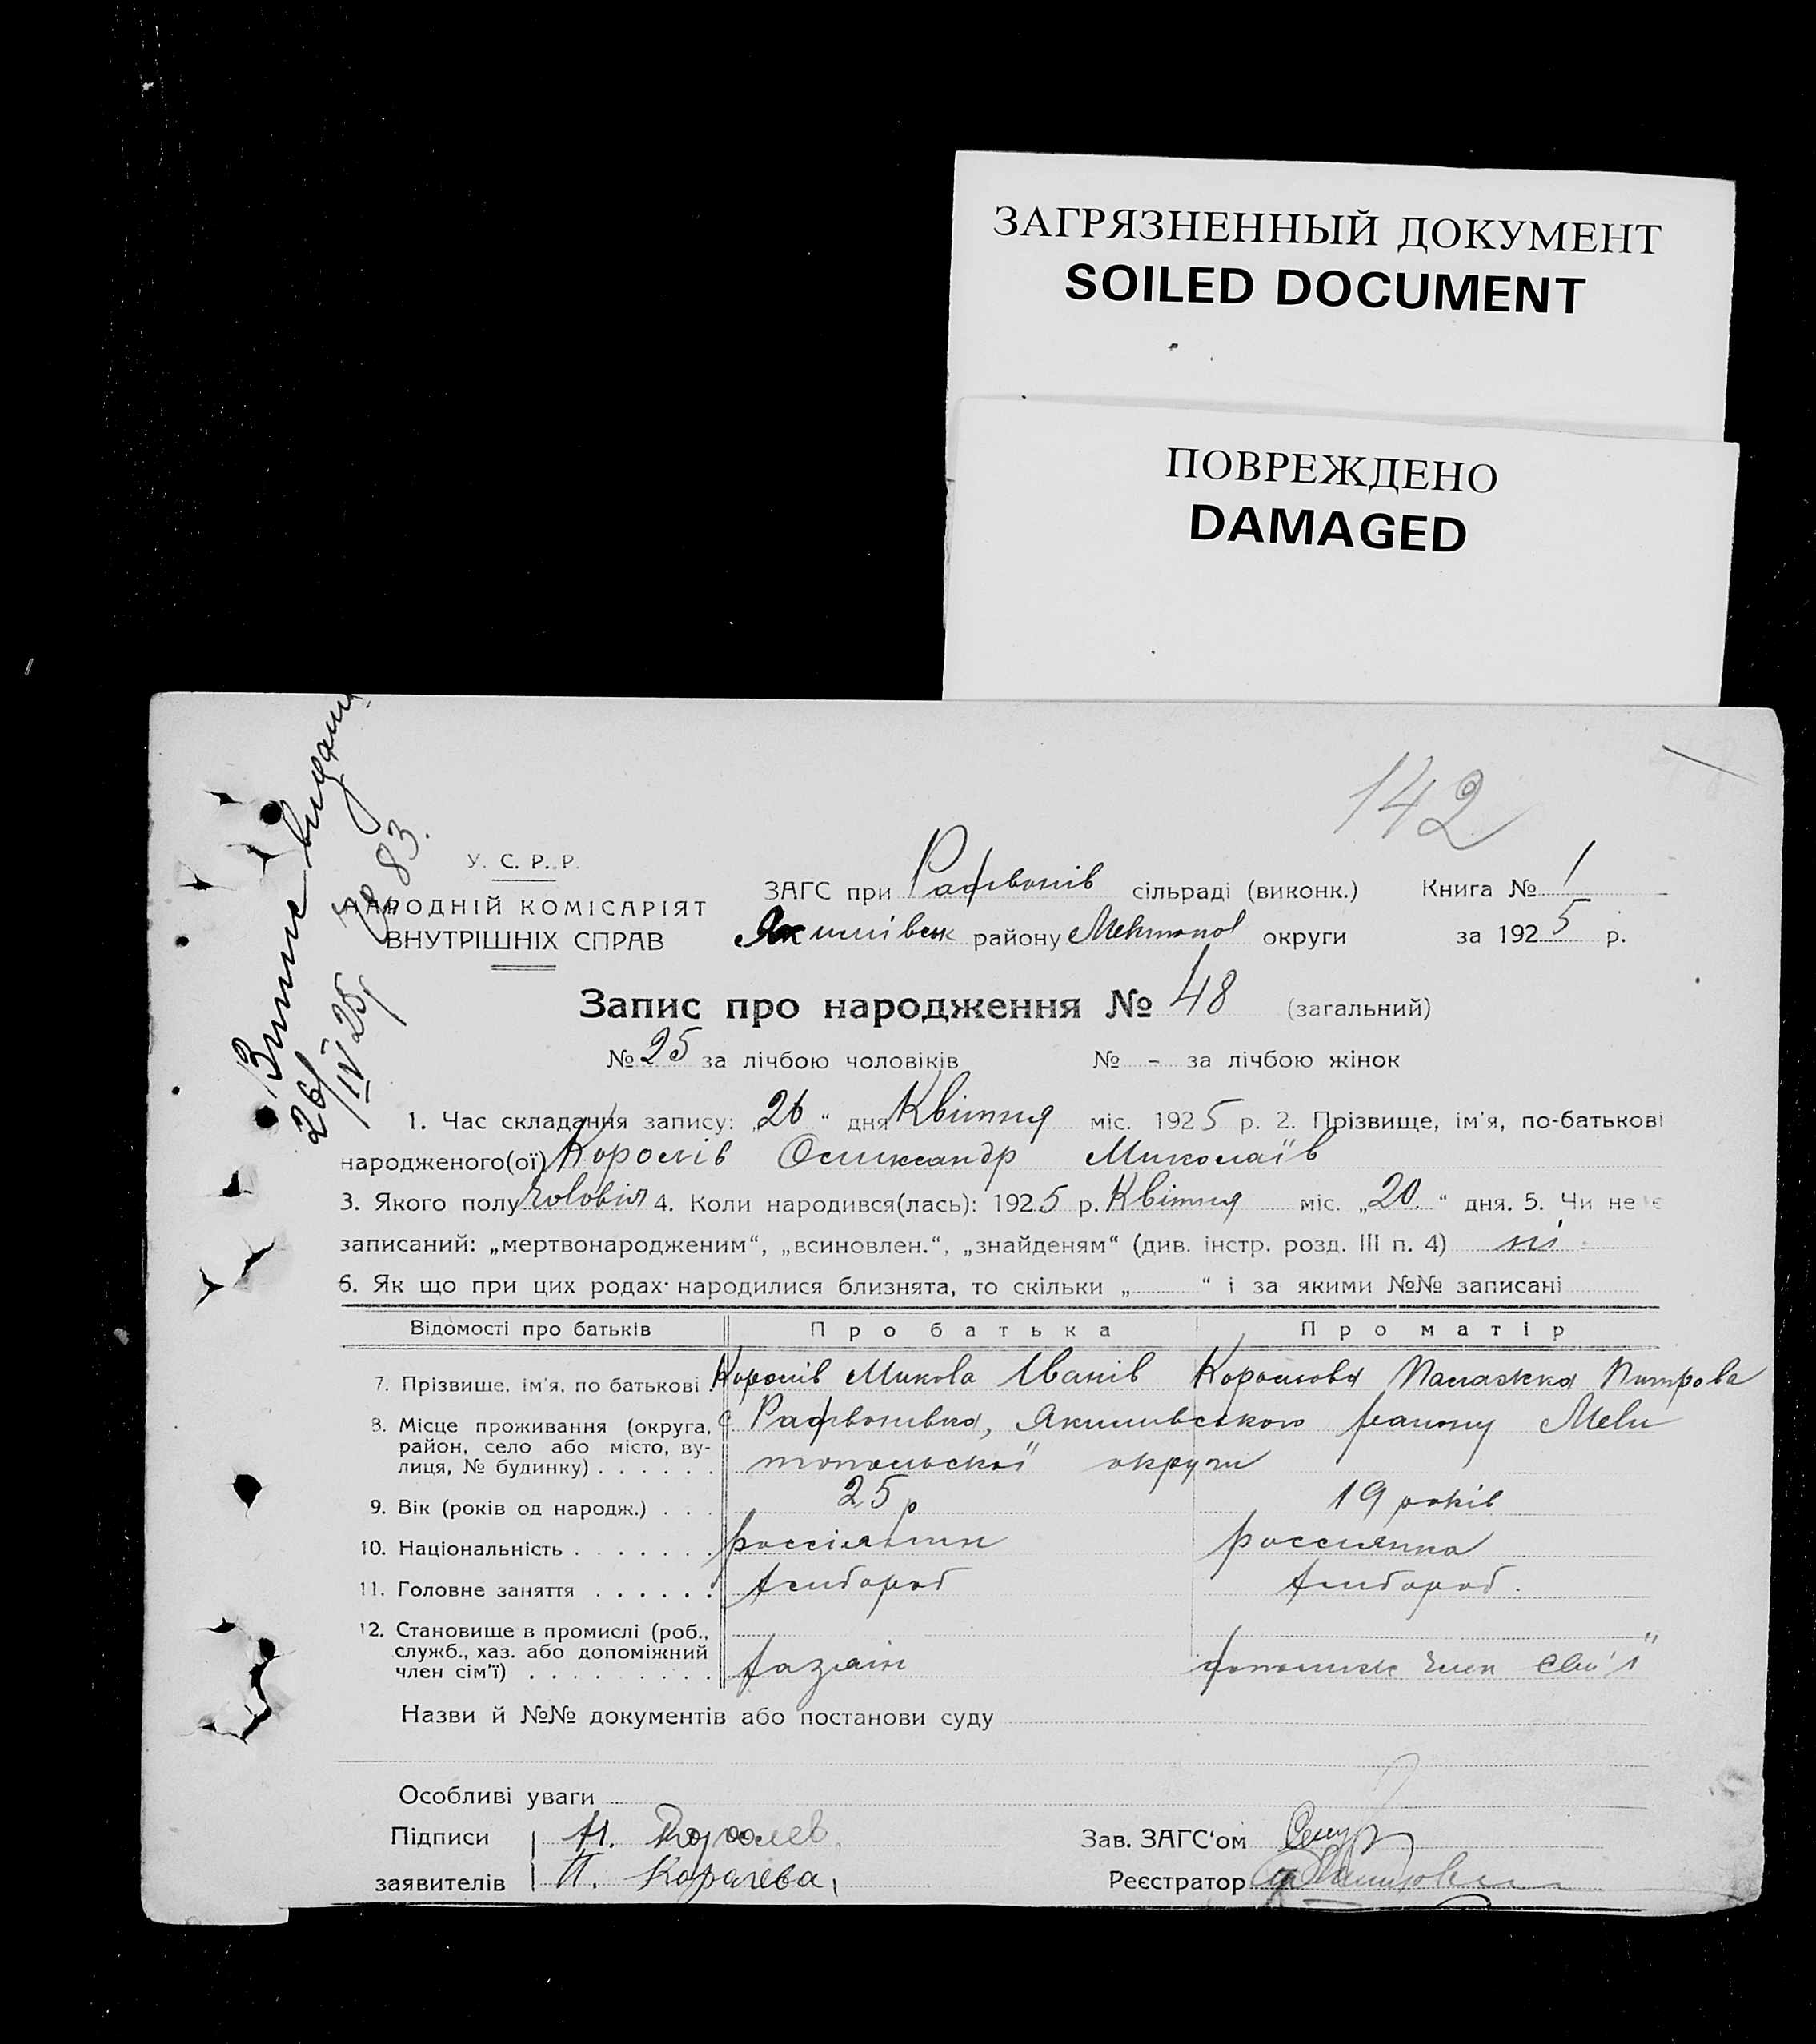 ЗАГРЯЗНЕННЫЙ ДОКУМЕНТ
SOILED DOCUMENT
ПОВРЕЖДЕНО
DAMAGED
142
Випис видано
26/IV 25 № 83.
У. С. Р. Р.
НАРОДНІЙ КОМІСАРІЯТ
ВНУТРІШНІХ СПРАВ
ЗАГС при сільраді (виконк.) Книга № 1
Якимівськ району Мелитопол округи за 1925 р.
Запис про народження № 48 (загальний)
№ 25 за лічбою чоловіків № - за лічбою жінок
1. Час складання запису: „26“ дня Квітня міс. 1925 р. 2. Прізвище, ім'я, по-батькові
народженого(ої) Королів Олександр Миколаїв
3. Якого полу чоловіч 4. Коли народився(лась): 1925 р. Квітня міс. „20.“ дня. 5. Чи не є
записаний: „мертвонародженим“, „всиновлен.“, „знайденям“ (див. інстр. розд. III п. 4) ні
6. Як що при цих родах народилися близнята, то скільки „ “ і за якими №№ записані
Відомості про батьків Про батька Про матір
7. Прізвище, ім'я, по батькові . Королів Микола Іванів Королова Палажка Петрова
8. Місце проживання (округа, район, село або місто, вулиця, № будинку) . . . . . . Якимівського району Мели
топольської округи
9. Вік (років од народж.) . . . 25 р 19 років
10. Національність . . . . . . . россіянин россиянка
11. Головне заняття . . . . . . хлібороб хлібороб.
12. Становище в промислі (роб., служб., хаз. або допоміжний член сім'ї) . . . . . . . . . хазяін допоміж член сем'ї
Назви й №№ документів або постанови суду
Особливі уваги
Підписи Н. Королев. Зав. ЗАГС'ом
заявителів П. Королева, Реєстратор